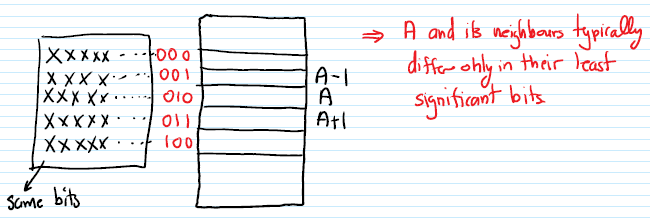 XXXXX ···· 000
XXXX ···· 001
XXXXX ···· 010
XXXXX ···· 011
XXXXX ···· 100
same bits
A-1
A
A+1
⇒ A and its neighbours typically
differ only in their least
significant bits